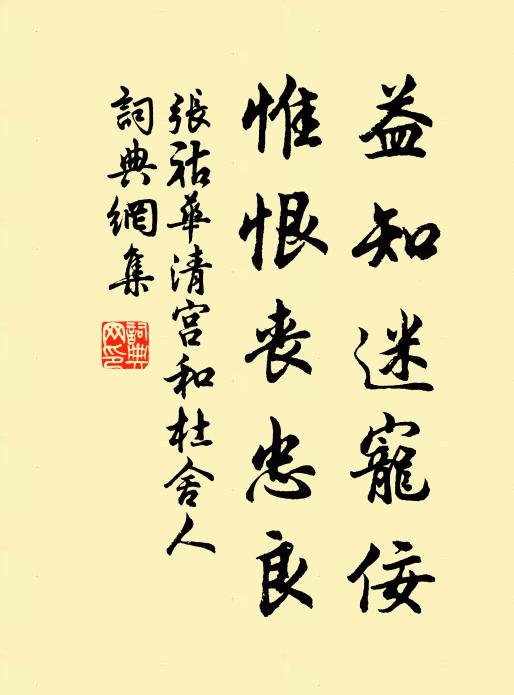 益知迷寵佞
惟恨喪忠良
張祜華清宮和杜舍人
詞典網集
詞典網印